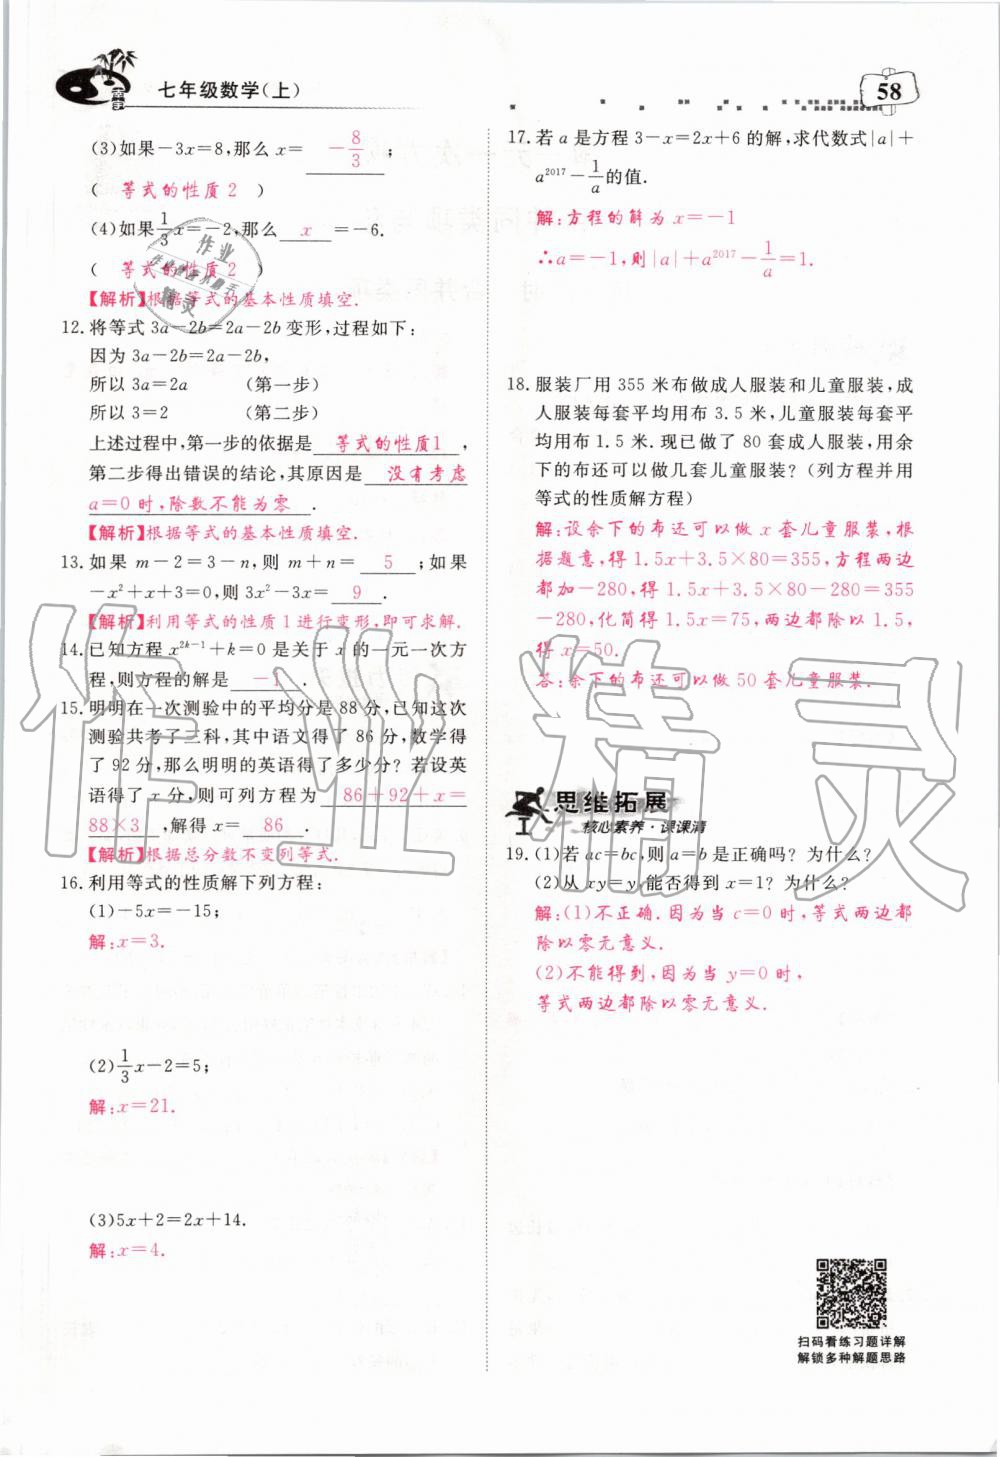 七年级数学(上)
58
(3)如果-3x=8,那么x= -8/3 ;
( 等式的性质2 )
(4)如果1/3x=-2,那么 x =-6.
( 等式的性质2 )
【解析】根据等式的基本性质填空.
12.将等式3a-2b=2a-2b变形,过程如下:
因为3a-2b=2a-2b,
所以3a=2a (第一步)
所以3=2 (第二步)
上述过程中,第一步的依据是 等式的性质1 ,
第二步得出错误的结论,其原因是 没有考虑
a=0时,除数不能为零 .
【解析】根据等式的基本性质填空.
13.如果 m-2=3-n,则 m+n= 5 ;如果
-x²+x+3=0,则3x²-3x= 9 .
【解析】利用等式的性质1进行变形,即可求解.
14.已知方程x²ᵏ⁻¹+k=0是关于x的一元一次方
程,则方程的解是 -1 .
15.明明在一次测验中的平均分是88分,已知这次
测验共考了三科,其中语文得了86分,数学得
了92分,那么明明的英语得了多少分?若设英
语得了x分,则可列方程为 86+92+x=
88×3 ,解得x= 86 .
【解析】根据总分数不变列等式.
16.利用等式的性质解下列方程:
(1)-5x=-15;
解:x=3.
(2)1/3x-2=5;
解:x=21.
(3)5x+2=2x+14.
解:x=4.
17.若a是方程3-x=2x+6的解,求代数式|a|+
a²⁰¹⁷-1/a的值.
解:方程的解为x=-1
∴a=-1,则|a|+a²⁰¹⁷-1/a=1.
18.服装厂用355米布做成人服装和儿童服装,成
人服装每套平均用布3.5米,儿童服装每套平
均用布1.5米.现已做了80套成人服装,用余
下的布还可以做几套儿童服装?(列方程并用
等式的性质解方程)
解:设余下的布还可以做x套儿童服装,根
据题意,得1.5x+3.5×80=355,方程两边
都加-280,得1.5x+3.5×80-280=355
-280,化简得1.5x=75,两边都除以1.5,
得x=50.
答:余下的布还可以做50套儿童服装.
思维拓展
核心素养·课课清
19.(1)若ac=bc,则a=b是正确吗?为什么?
(2)从xy=y能否得到x=1?为什么?
解:(1)不正确.因为当c=0时,等式两边都
除以零无意义.
(2)不能得到,因为当y=0时,
等式两边都除以零无意义.
扫码看练习题详解
解锁多种解题思路
作业精灵